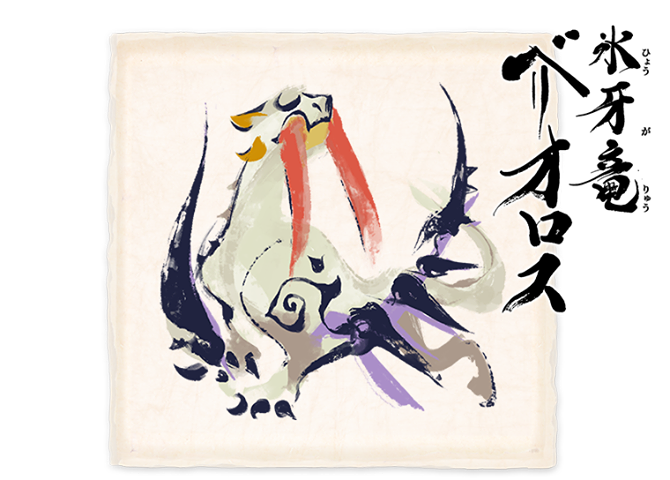 氷牙竜
ひょうがりゅう
ベリオロス